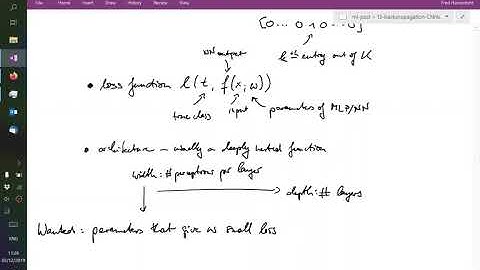 Fred Hamprecht
ml-post > 13-Backpropagation-CNNs
[0 ... 0 1 0 ... 0]
k th entry out of K
NN output
• loss function l(t, f(x; w))
true class input parameters of MLP/NN
• architecture – usually a deeply nested function
width: # perceptrons per layer
depth: # layers
Wanted: parameters that give us small loss
ENG
11:26
03/12/2019